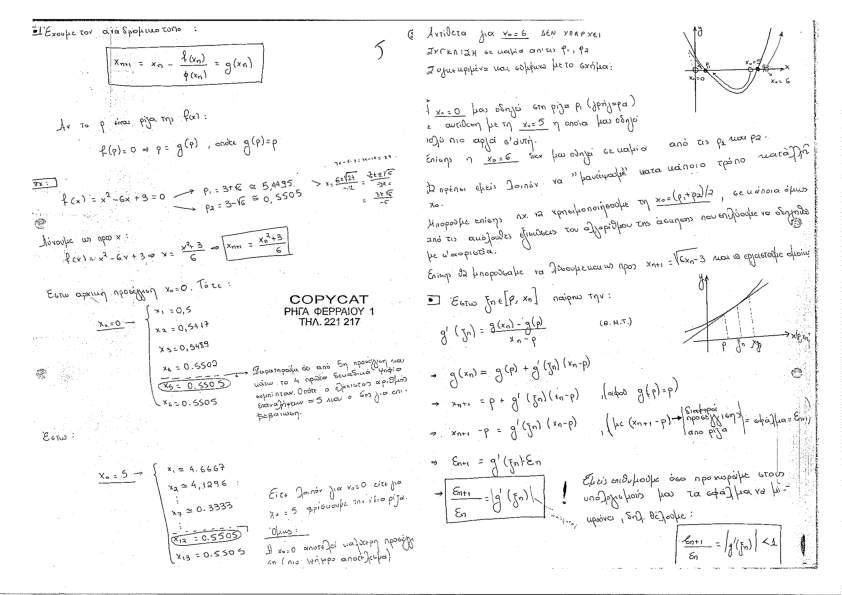 Έχουμε τον αναδρομικο τυπο :
x_{n+1} = x_n - f(x_n)/φ(x_n) = g(x_n)
5
Αν το ρ ειναι ρίζα της f(x) :
f(ρ) = 0 ⇒ ρ = g(ρ) , οποτε g(ρ) = ρ
πχ :
f(x) = x² - 6x + 3 = 0
ρ₁ = 3+√6 ≅ 5,4495.
ρ₂ = 3-√6 ≅ 0,5505
Λύνουμε ως προς x :
f(x) = x² - 6x + 3 ⇒ x = (x²+3)/6 ⇒ x_{n+1} = (x_n²+3)/6
Εστω αρχική προσέγγιση x₀=0. Τότε :
x₀=0 →
x₁ = 0,5
x₂ = 0,5417
x₃ = 0,5489
x₄ = 0.5502
x₅ = 0.5505
x₆ = 0.5505
Παρατηρούμε ότι από 5η προσέγγιση και
κάτω τα 4 πρώτα δεκαδικά ψηφία
συμπίπτουν. Οπότε ο ελάχιστος αριθμός
επαναλήψεων = 5 και ο 6ος για επι-
βεβαιωση.
COPYCAT
ΡΗΓΑ ΦΕΡΡΑΙΟΥ 1
ΤΗΛ. 221 217
Εστω :
x₀ = 5 →
x₁ = 4.6667
x₂ = 4,1296
⋮
x₇ = 0.3333
⋮
x₁₂ = 0.5505
x₁₃ = 0.5505
Είτε λοιπόν για x₀=0 είτε για
x₀ = 5 βρίσκουμε την ίδια ρίζα.
Όμως :
Η x₀=0 αποτελεί καλύτερη προσέγγι
ση (πιο γρήγορο αποτέλεσμα)
Αντίθετα για x₀=6 ΔΕΝ ΥΠΑΡΧΕΙ
ΣΥΓΚΛΙΣΗ σε καμία απο τις ρ₁, ρ₂
Συγκεκριμένα και σύμφωνα με το σχήμα:
y
x
x₀=0
ρ₁
x₀=5
x₀=6
x₀=0 μας οδηγεί στη ρίζα ρ₁ (γρήγορα)
αντίθεση με τη x₀=5 η οποία μας οδηγεί
πολύ πιο αργά σ'αυτή.
Επίσης η x₀=6 δεν μας οδηγεί σε καμία από τις ρ₁ και ρ₂.
πρέπει εμείς λοιπόν να "μαντέψουμε" κατα κάποιο τρόπο κατάλλη
x₀.
Μπορούμε επίσης πχ. να χρησιμοποιήσουμε τη x₀=(ρ₁+ρ₂)/2 , σε κάποια όμως
από τις ακόλουθες του αλγορίθμου της άσκησης που επιλύουμε να οδηγηθού
με σ'αοριστία.
Επίσης θα μπορούσαμε να λύσουμε και ως προς x_{n+1} = √(6x_n-3) και να εργαστούμε ομοίως
Έστω ξ_n ∈ [ρ, x_n] παίρνω την :
g'(ξ_n) = (g(x_n) - g(ρ))/(x_n - ρ) (Θ.Μ.Τ.)
y
ρ ξ_n x_n
⇒ g(x_n) = g(ρ) + g'(ξ_n)(x_n-ρ)
⇒ x_{n+1} = ρ + g'(ξ_n)(x_n-ρ) ,(αφού g(ρ)=ρ)
⇒ x_{n+1} - ρ = g'(ξ_n)(x_n-ρ) , (με (x_{n+1}-ρ) → |διαφορά προσέγγισης από ρίζα| = σφάλμα = ε_{n+1})
⇒ ε_{n+1} = g'(ξ_n)·ε_n
⇒ ε_{n+1}/ε_n = |g'(ξ_n)| !
Εμείς επιθυμούμε όσο προχωράμε στους
υπολογισμούς μας τα σφάλματα να μι-
κραίνει, δηλ θέλουμε :
ε_{n+1}/ε_n = |g'(ξ_n)| < 1